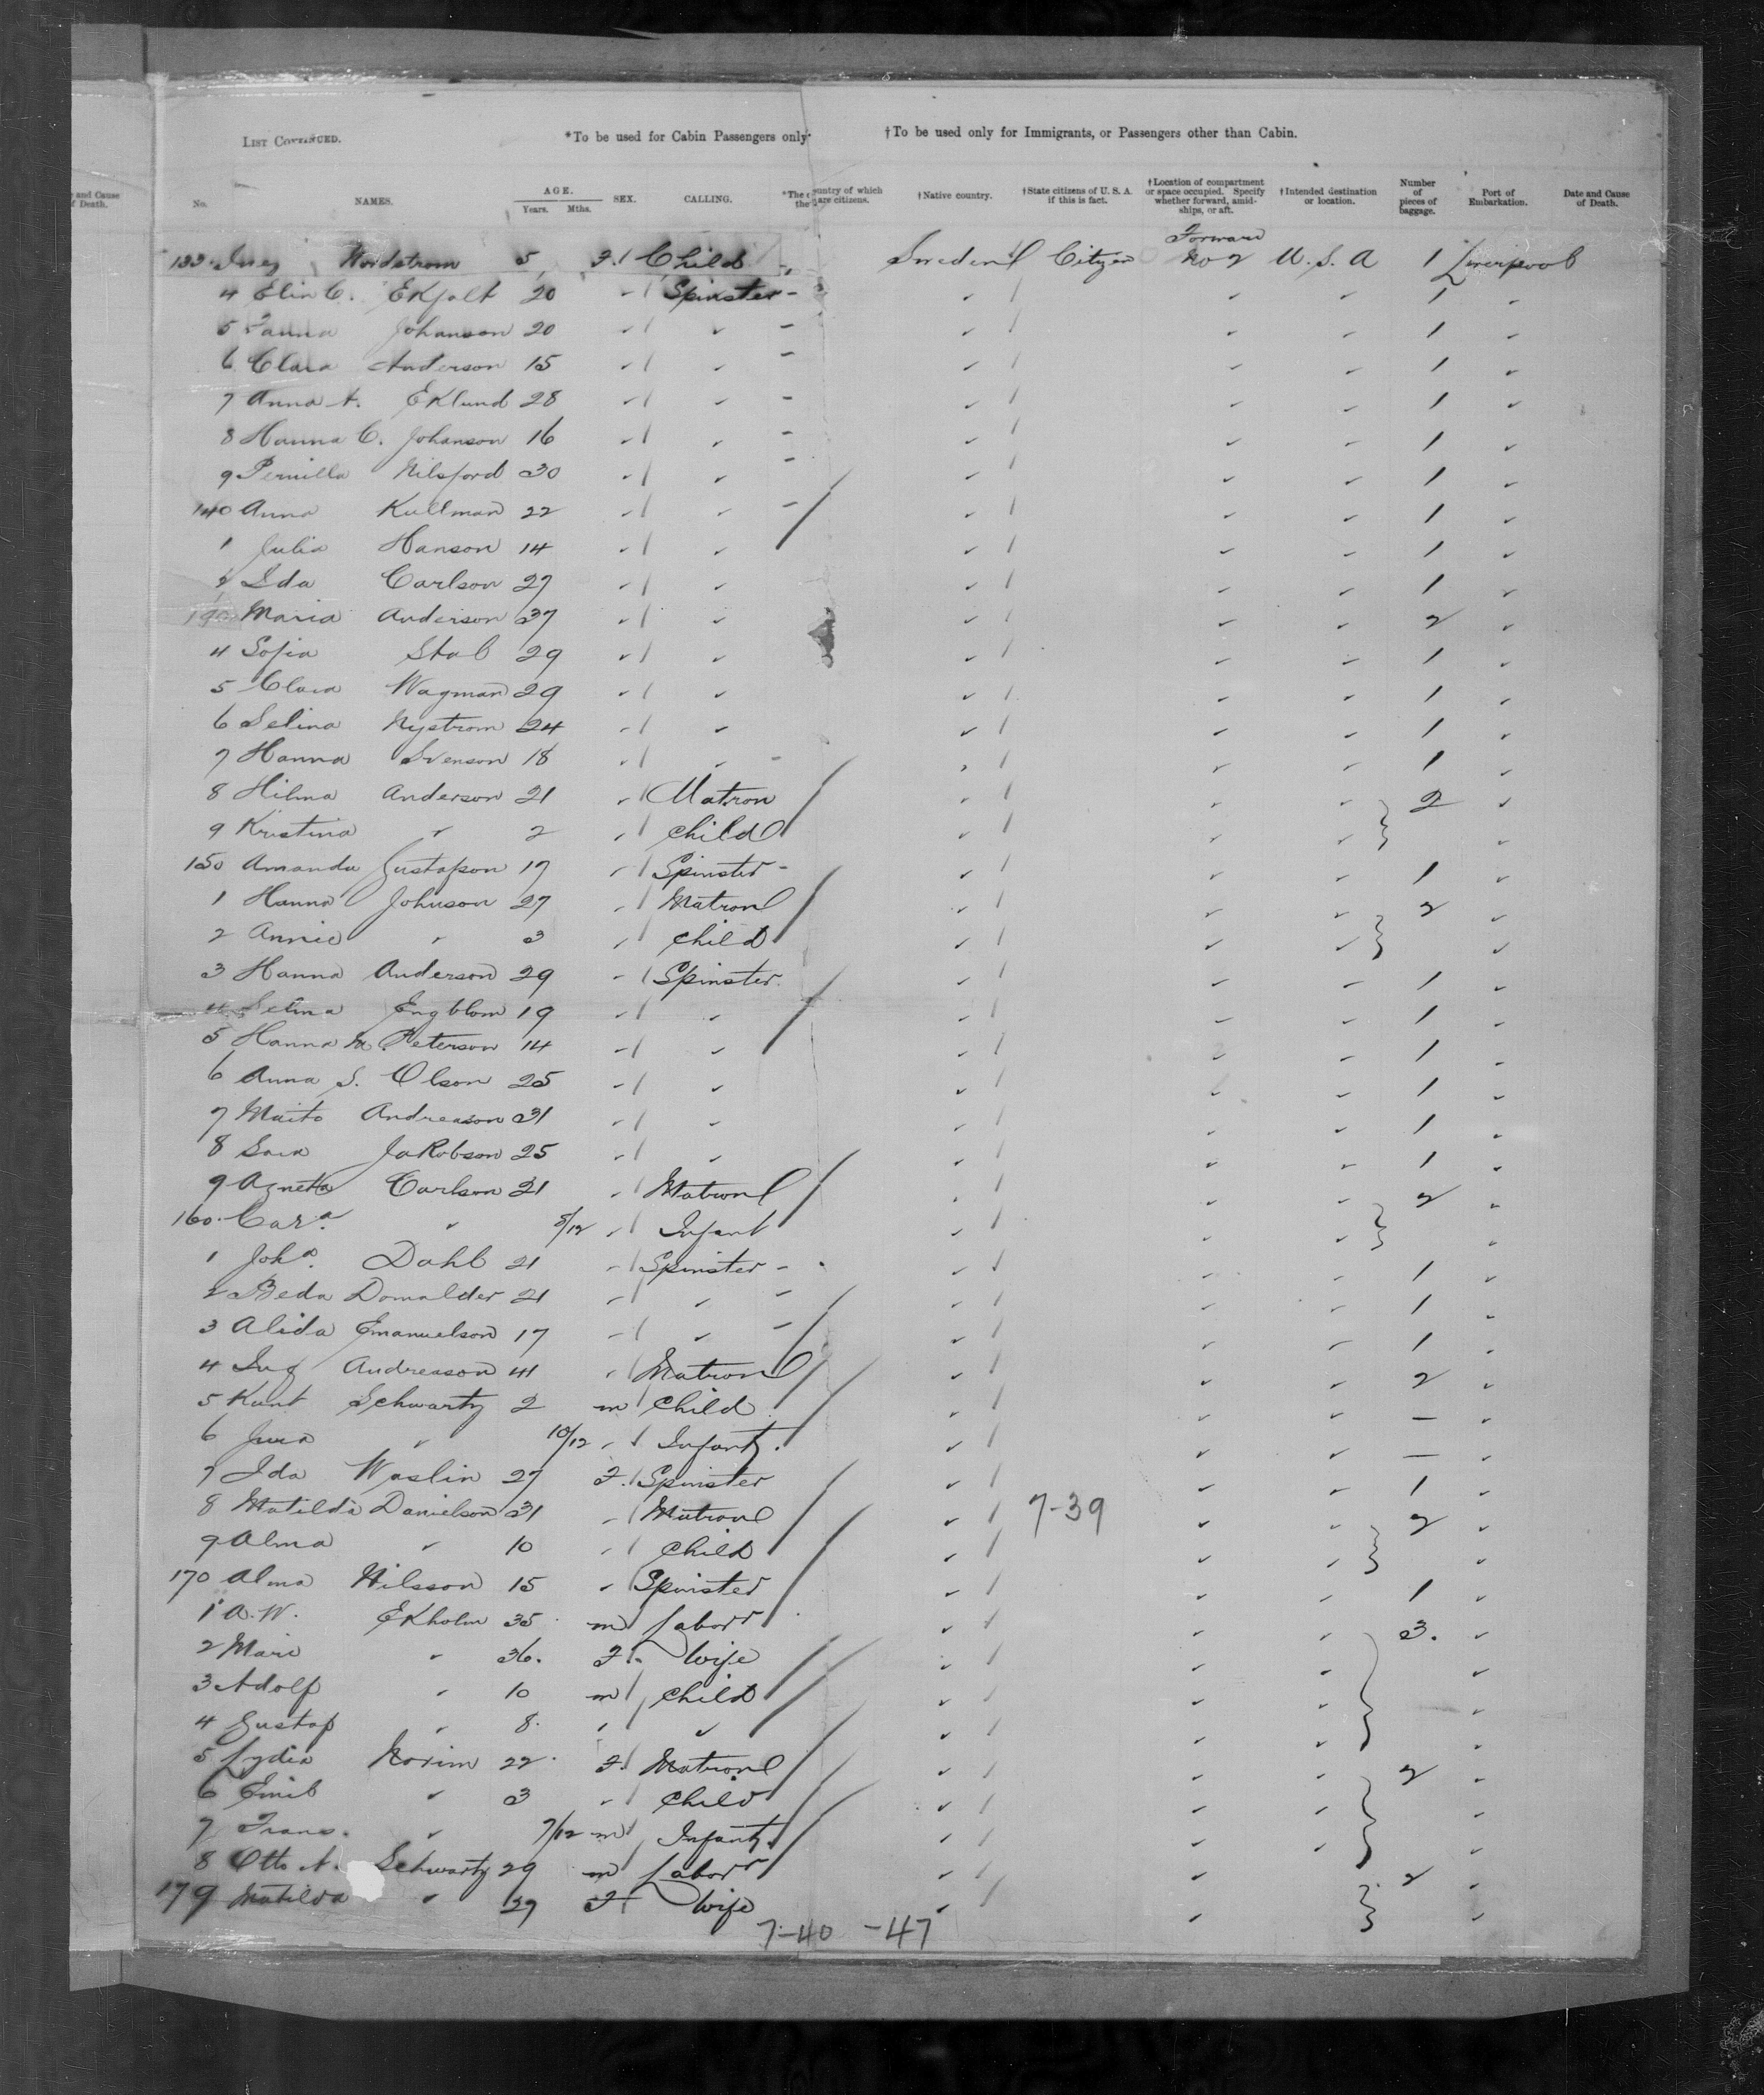 LIST CONTINUED. *To be used for Cabin Passengers only. †To be used only for Immigrants, or Passengers other than Cabin.
and Cause of Death. No. NAMES. AGE. Years. Mths. SEX. CALLING. *The country of which they are citizens. †Native country. †State citizens of U. S. A. if this is fact. †Location of compartment or space occupied. Specify whether forward, amidships, or aft. †Intended destination or location. Number of pieces of baggage. Port of Embarkation. Date and Cause of Death.
133. Inez Nordstrom 5 F. Child Sweden Citizen Forward No 2 U. S. A 1 Liverpool
4 Elin C. Ekfalt 20 " Spinster " " " 1 "
5 Johanson 20 " " " " " 1 "
6 Clara Anderson 15 " " " " " 1 "
7 Anna A. Eklund 28 " " " " " 1 "
8 Hanna C. Johanson 16 " " " " " 1 "
9 Pernilla Nilsford 30 " " " " " 1 "
140 Anna Kullman 22 " " " " " 1 "
1 Julia Hanson 14 " " " " " 1 "
2 Ida Carlson 27 " " " " " 1 "
Maria Anderson 37 " " " " " 2 "
4 Sofia Stal 29 " " " " " 1 "
5 Clara Wagman 29 " " " " " 1 "
6 Selina Nystrom 24 " " " " " 1 "
7 Hanna Svenson 18 " " " " " 1 "
8 Hilma Anderson 21 " Matron " " " 2 "
9 Kristina " 2 " Child " " " "
150 Amanda Gustafson 17 " Spinster " " " 1 "
1 Hanna Johnson 27 " Matron " " " 2 "
2 Annie " 3 " Child " " " "
3 Hanna Anderson 29 " Spinster " " " 1 "
4 Selma Engblom 19 " " " " " 1 "
5 Hanna M. Peterson 14 " " " " " 1 "
6 Anna S. Olson 25 " " " " " 1 "
7 Andreason 31 " " " " " 1 "
8 Sara Jakobson 25 " " " " " 1 "
9 Agneta Carlson 21 " Matron " " " 2 "
160. Car.a " 5/12 " Infant " " " "
1 Joha. Dahl 21 " Spinster " " " 1 "
2 Beda Domalder 21 " " " " " 1 "
3 Alida Emanuelson 17 " " " " " 1 "
4 Ing Andreason 41 " Matron " " " 2 "
5 Knut Schwartz 2 m Child " " " — "
6 " 10/12 " Infant. " " " — "
7 Ida Waslin 27 F. Spinster " " " 1 "
8 Matilda Danielson 31 " Matron " 7-39 " " 2 "
9 Alma " 10 " Child " " " "
170 Alma Nilsson 15 " Spinster " " " 1 "
1 A. W. Ekholm 35 m Laborr " " " 3. "
2 Marie " 36. F. Wife " " " "
3 Adolf " 10 m Child " " " "
4 Gustaf " 8. " " " " " "
5 Lydia Norim 22 F. Matron " " " 2 "
6 Emil " 3 " Child " " " "
7 Frans. " 7/12 m Infant. " " " "
8 Otto A. Schwartz 29 m Laborr " " 2 "
179 Matilda " 29 F Wife " " "
7-40 -47